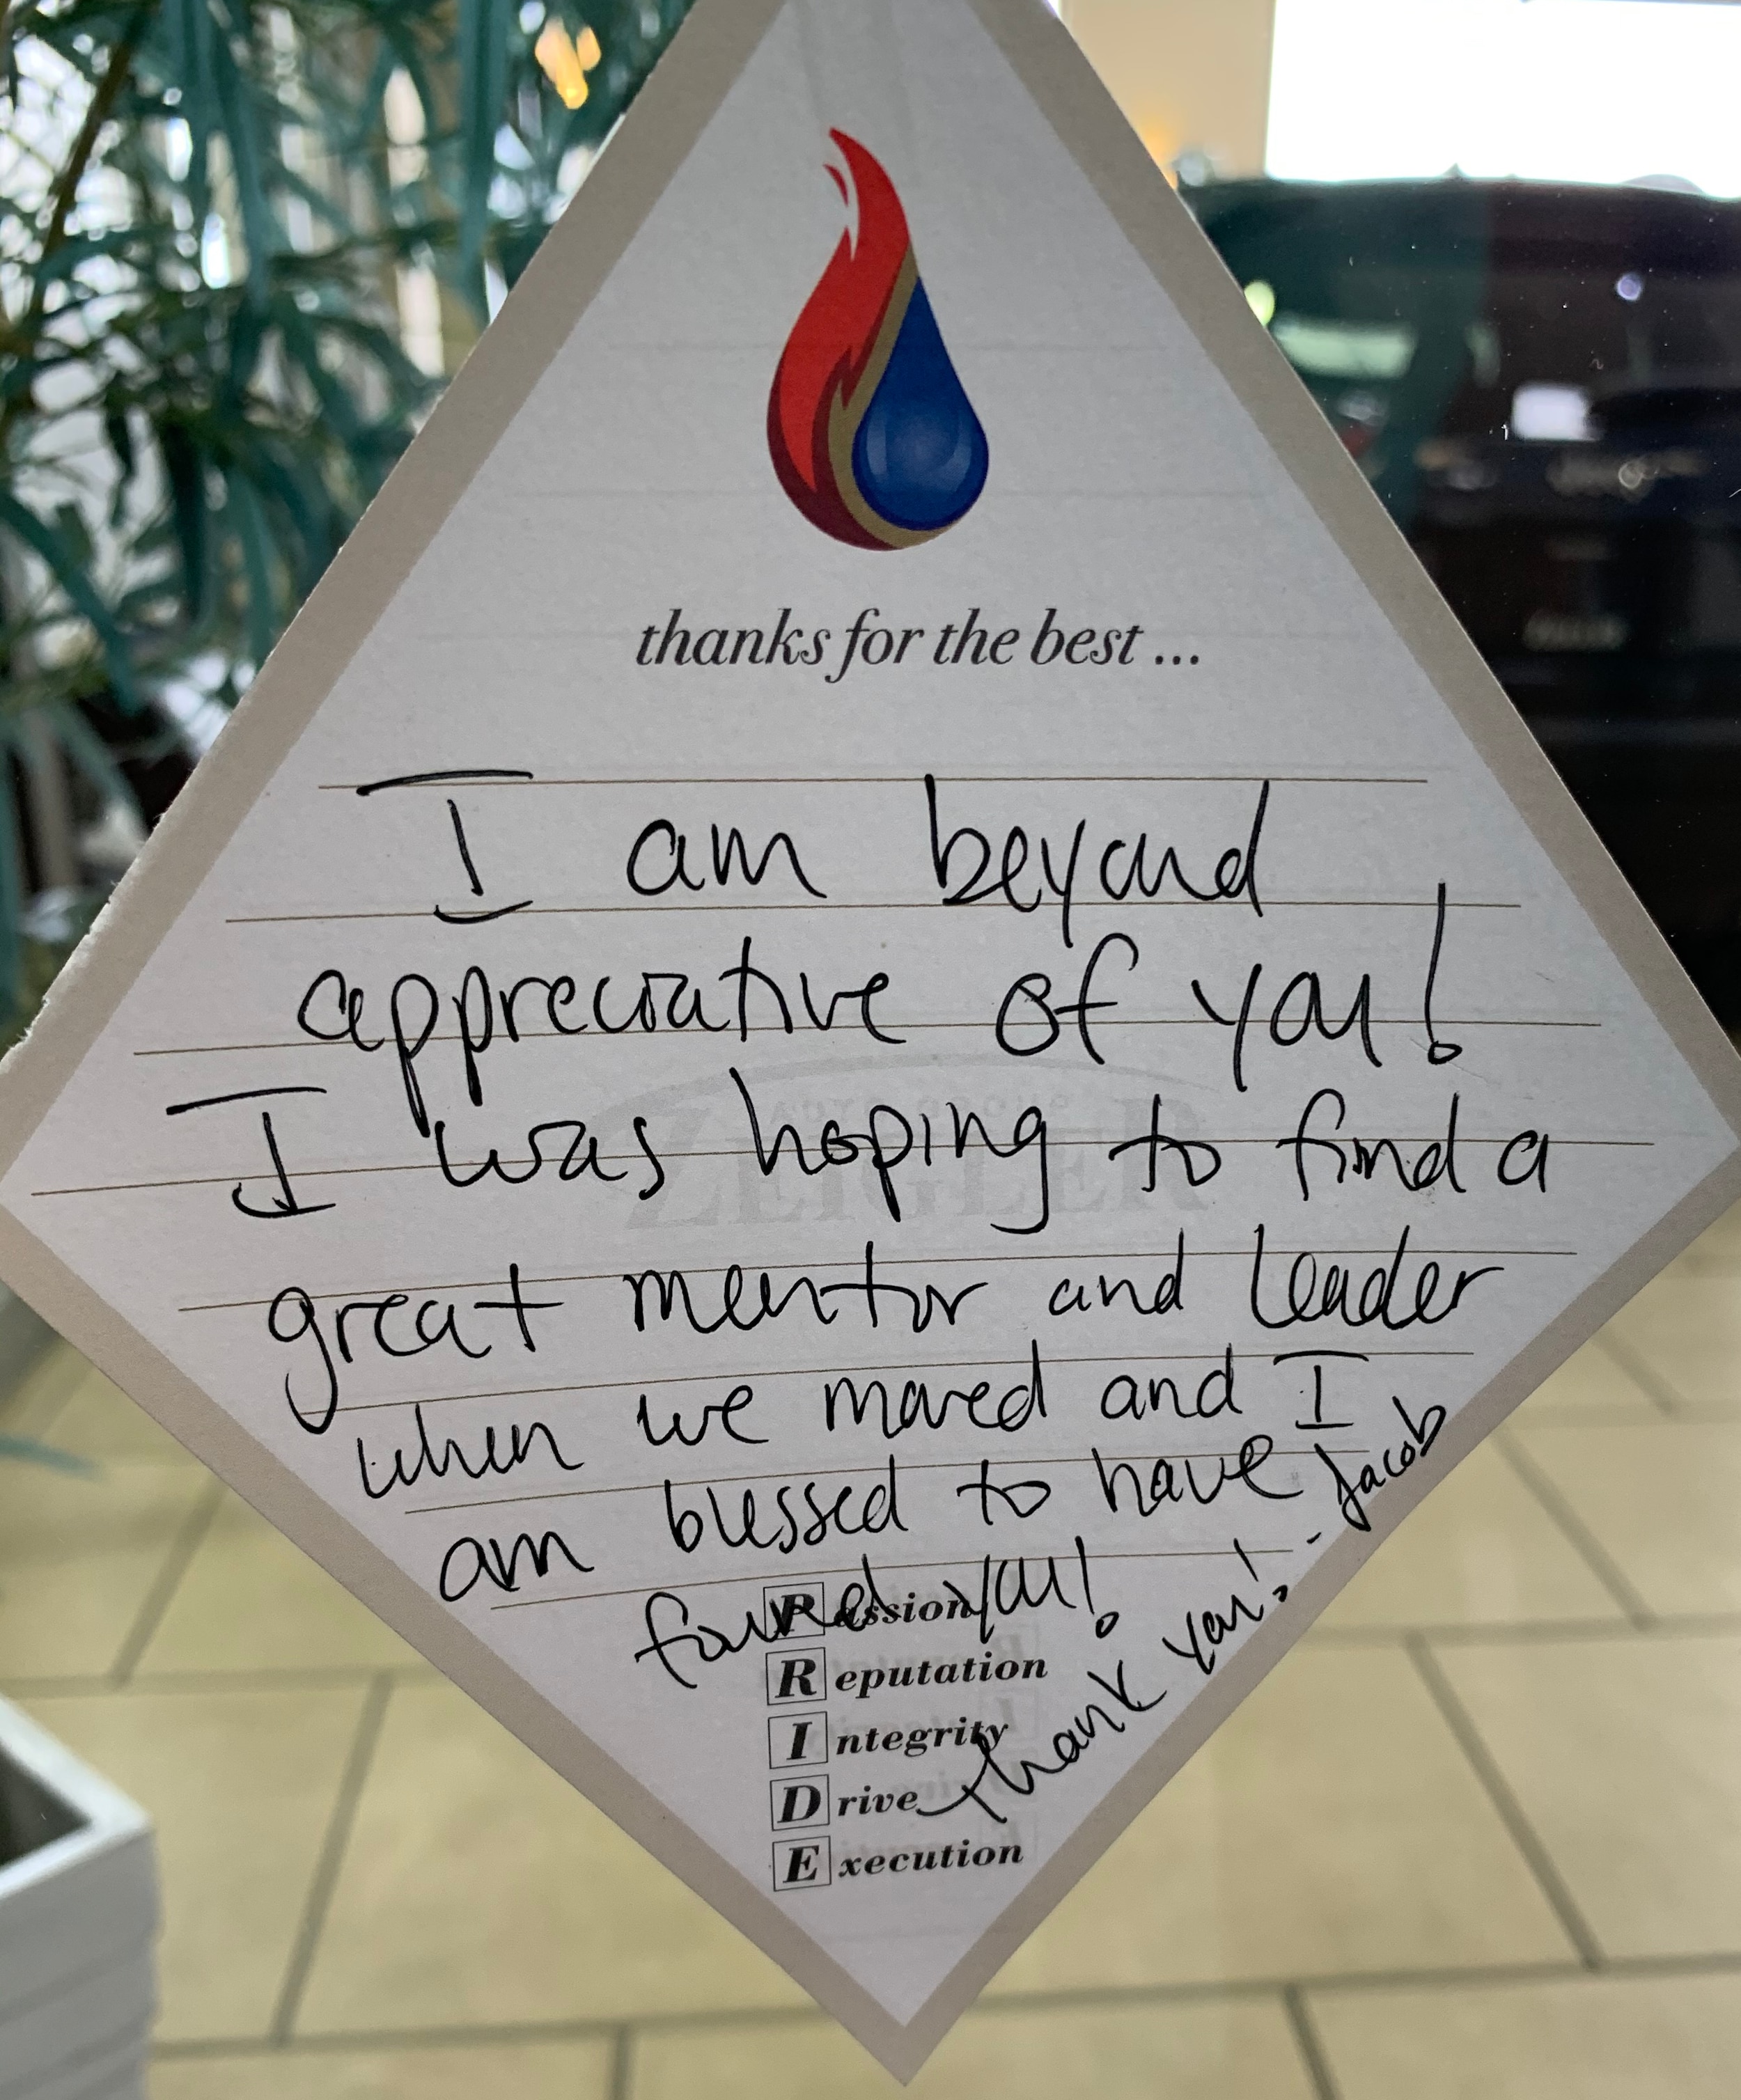 thanks for the best ...
I am beyond
appreciative of you!
I was hoping to find a
great mentor and leader
when we moved and I
am blessed to have
found you!
Thank you! - Jacob
Passion
Reputation
Integrity
Drive
Execution
ZEIGLER